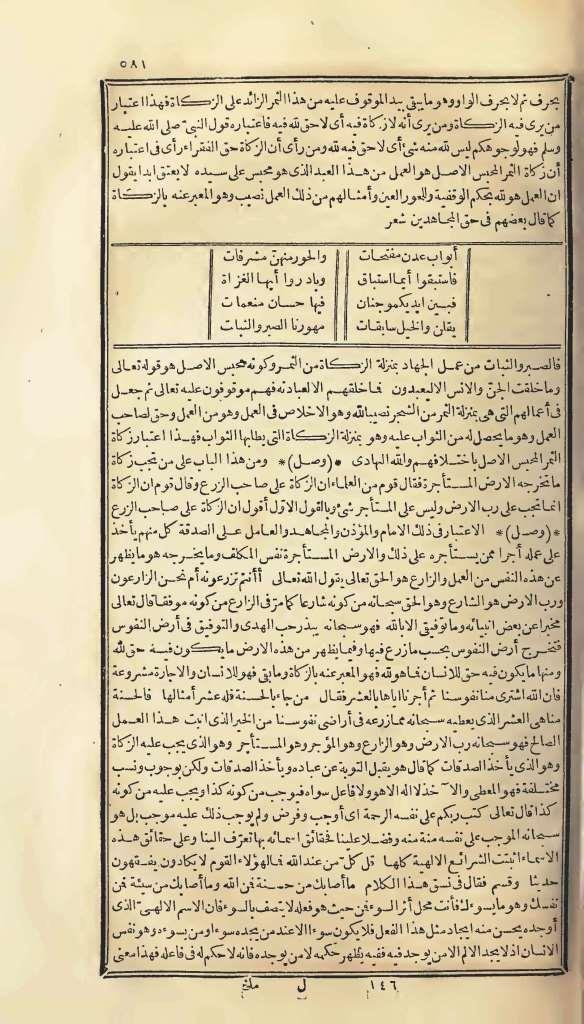 ٥٨١
يجرف ثم لا يجرف الواو وهو ما يبقى بيد الموقوف عليه من هذا الثمر الزائد على الزكاة فهذا اعتبار
من يرى فيه الزكاة ومن يرى أنه لا زكاة فيه أى لا حق لله فيه فاعتباره قول النبى صلى الله عليه
وسلم فهو لوجوهكم ليس لله منه شئ أى لا حق فيه لله ومن رأى أن الزكاة حق الفقراء رأى فى اعتباره
أن زكاة الثمر المحبس الاصل هو العمل من هذا العبد الذى هو محبس على سيده لا يعتق ابدا يقول
ان العمل هو لله بحكم الوقفية وللحور العين وأمثالهم من ذلك العمل نصيب وهو المعبر عنه بالزكاة
كما قال بعضهم فى حق المجاهدين شعر
أبواب عدن مفتحات والحور منهن مشرفات
فاستبقوا أيما استباق وبادروا أيها الغزاة
فبين ايديكمو جنان فيها حسان منعمات
يقلن والخيل سابقات مهورنا الصبر والثبات
فالصبر والثبات من عمل الجهاد بمنزلة الزكاة من الثمر وكونه محبس الاصل هو قوله تعالى
وما خلقت الجن والانس الا ليعبدون فما خلقهم الا لعبادته فهم موقوفون عليه تعالى ثم جعل
فى أعمالهم التى هى بمنزلة الثمر من الشجر نصيبا لله وهو الاخلاص فى العمل وهو من العمل وحق لصاحب
العمل وهو ما يحصل له من الثواب عليه وهو بمنزلة الزكاة التى يطلبها الثواب فهذا اعتبار زكاة
الثمر المحبس الاصل باختلافهم والله الهادى *(وصل)* ومن هذا الباب على من تجب زكاة
ما تخرجه الارض المستأجرة فقال قوم من العلماء ان الزكاة على صاحب الزرع وقال قوم ان الزكاة
انما تجب على رب الارض وليس على المستأجر شئ وبالقول الاول أقول ان الزكاة على صاحب الزرع
*(وصل)* الاعتبار فى ذلك الامام والمؤذن والمجاهد والعامل على الصدقة كل منهم يأخذ
على عمله أجرا ممن يستأجره على ذلك والارض المستأجرة نفس المكلف وما تخرجه هو ما يظهر
عن هذه النفس من العمل والزارع هو الحق تعالى يقول الله تعالى أأنتم تزرعونه أم نحن الزارعون
ورب الارض هو الشارع وهو الحق سبحانه من كونه شارعا كما مر فى الزارع من كونه موفقا قال تعالى
مخبرا عن بعض انبيائه وما توفيقى الا بالله فهو سبحانه يبذر حب الهدى والتوفيق فى أرض النفوس
فتخرج أرض النفوس بحسب ما زرع فيها وفيما يظهر من هذه الارض ما يكون فيه حق لله
ومنها ما يكون فيه حق للانسان فما هو لله فهو المعبر عنه بالزكاة وما بقى فهو للانسان والاجارة مشروعة
فان الله اشترى منا نفوسنا ثم أجرنا اياها بالعشر فقال من جاء بالحسنة فله عشر أمثالها فالحسنة
منا هى العشر الذى يعطيه سبحانه مما زرعه فى أراضى نفوسنا من الخير الذى انبت هذا العمل
الصالح فهو سبحانه رب الارض وهو الزارع وهو المؤجر وهو المستأجر وهو الذى يجب عليه الزكاة
وهو الذى يأخذ الصدقات كما قال هو يقبل التوبة عن عباده ويأخذ الصدقات ولكن بوجوه ونسب
مختلفة فهو المعطى والآخذ لا اله الا هو ولا فاعل سواه فيوجب من كونه كذا ويجب عليه من كونه
كذا قال تعالى كتب ربكم على نفسه الرحمة اى أوجب وفرض ولم يوجب ذلك عليه موجب بل هو
سبحانه الموجب على نفسه منة منه وفضلا علينا فحقائق اسمائه بها تعرف الينا وعلى حقائق هذه
الاسماء اثبتت الشرائع الالهية كلها قل كل من عند الله فما لهؤلاء القوم لا يكادون يفقهون
حديثا وقسم فقال فى نسق هذا الكلام ما أصابك من حسنة فمن الله وما أصابك من سيئة فمن
نفسك وهو ما يسوءك فأنت محل أثر السوء فمن حيث هو فعله لا يتصف بالسوء فان الاسم الالهى الذى
أوجده يحسن منه ايجاد مثل هذا الفعل فلا يكون سوءا الا عند من يجده سوءا ومن يسوءه وهو نفس
الانسان اذ لا يجد الالم الا من يوجد فيه ففيه يظهر حكمه لا من يوجده فانه لا حكم له فى فاعله فهذا معنى
١٤٦ ل